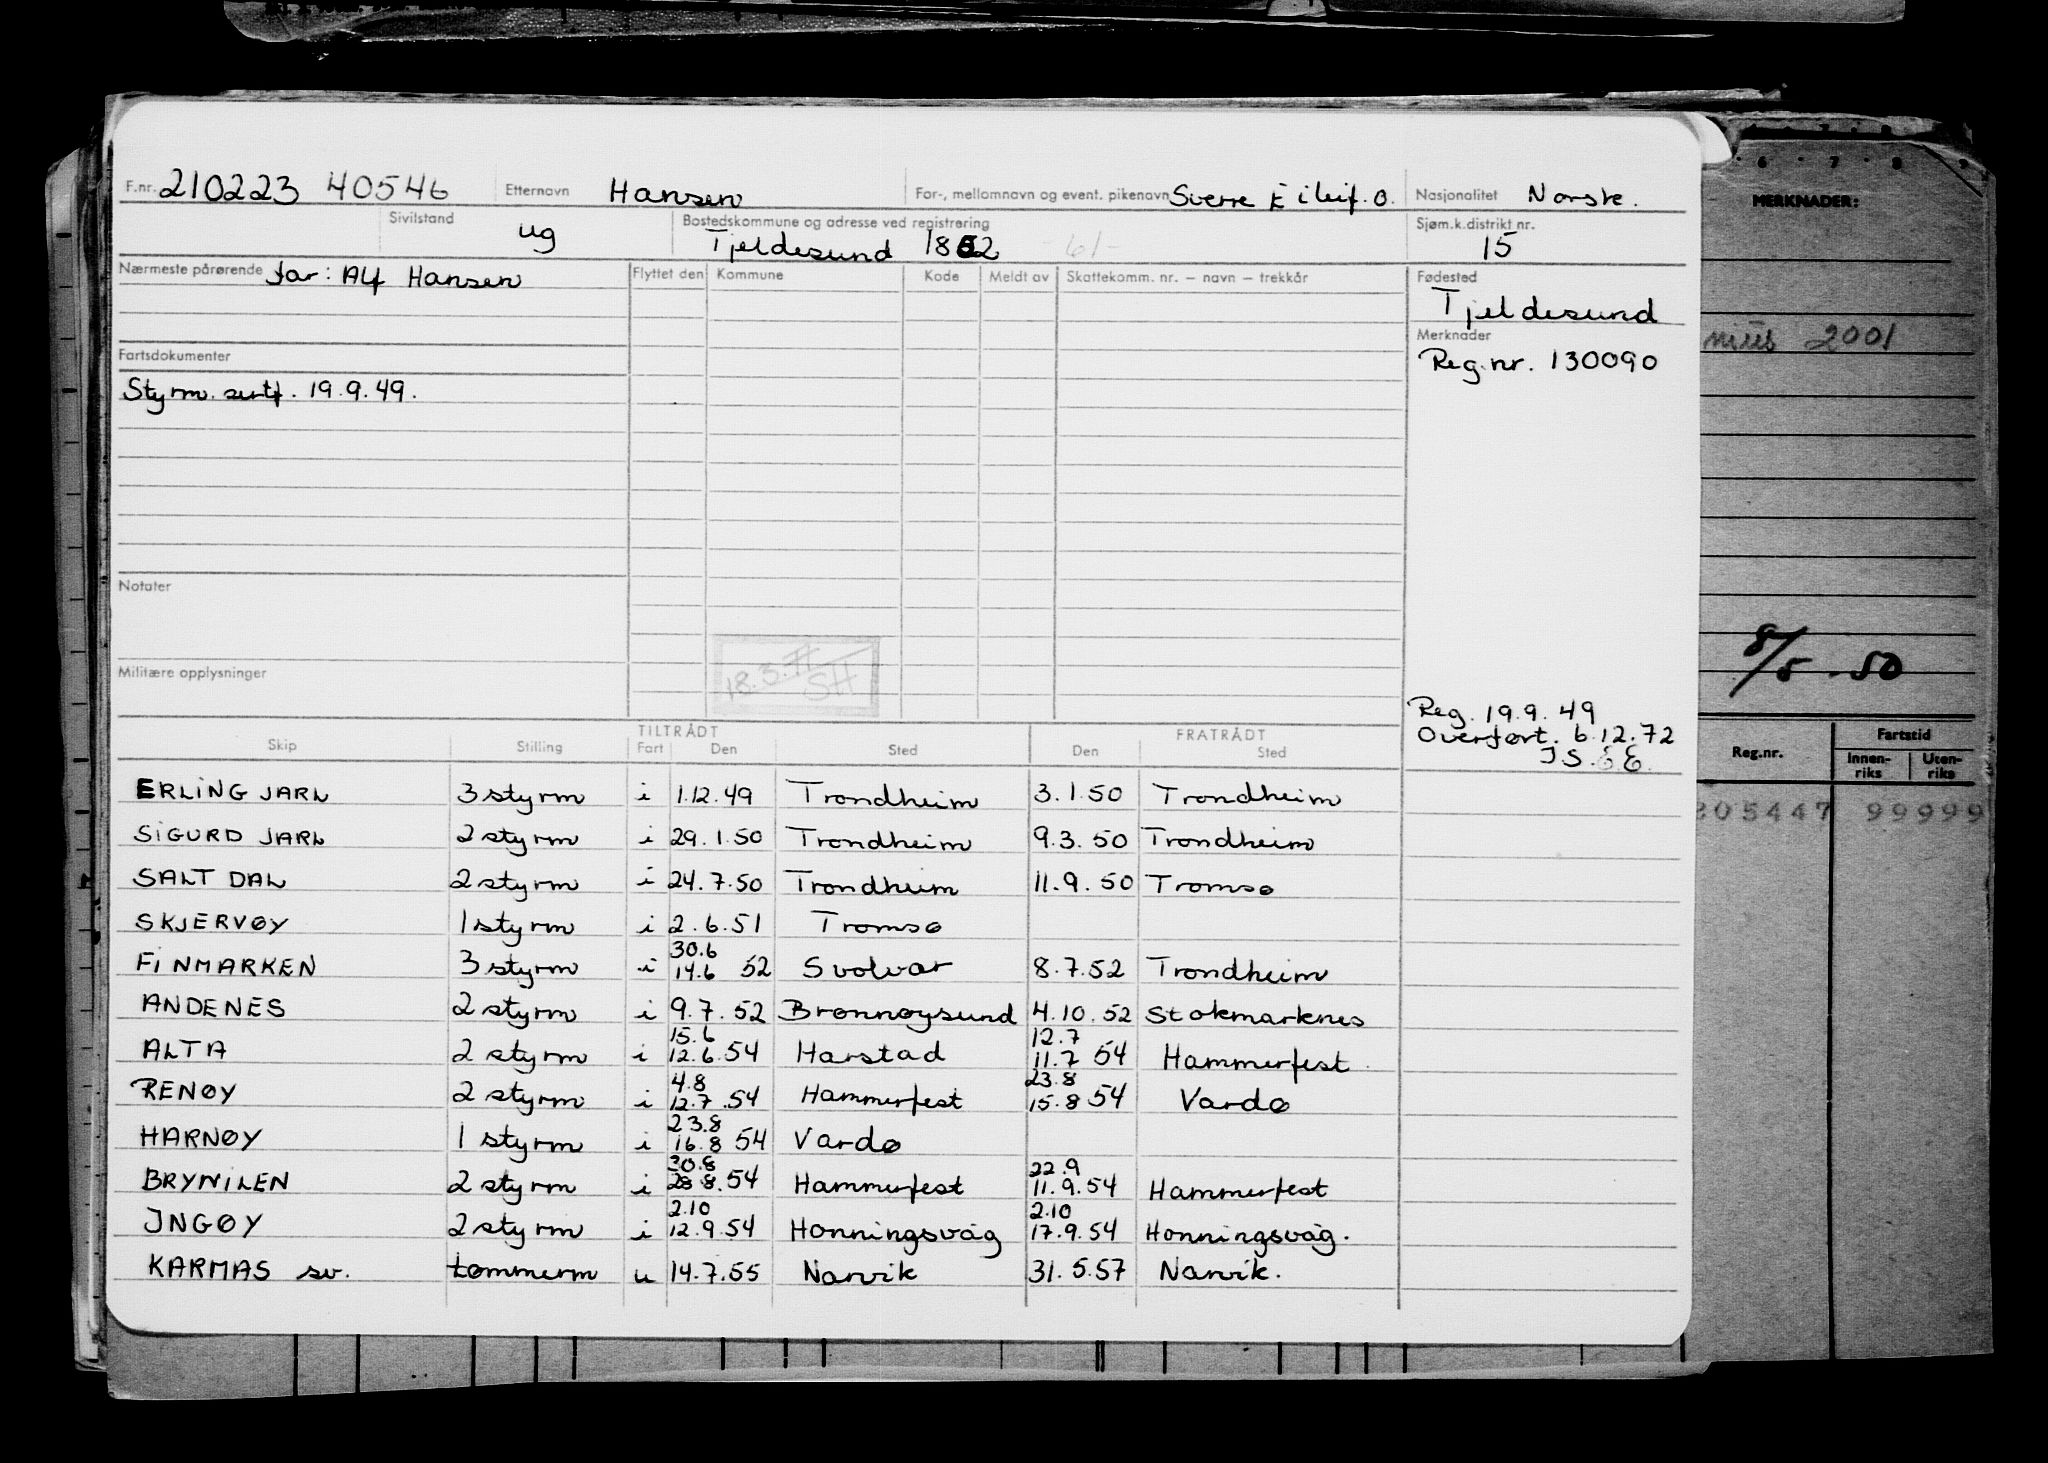 F.nr. 210223 40546 Etternavn Hansen For-, mellomnavn og event. pikenavn Sverre Eileif. O. Nasjonalitet Norske.
Sivilstand ug Bostedskommune og adresse ved registrering Tjeldesund 1852 -61- Sjøm.k.distrikt nr. 15
Nærmeste pårørende far: Alf Hansen Flyttet den Kommune Kode Meldt av Skattekomm. nr. – navn – trekkår Fødested
Tjeldesund
Merknader
Reg.nr. 130090
Fartsdokumenter
Styrm. sertf. 19.9.49.
Notater
Militære opplysninger
18.3.77 SH
Reg. 19.9.49
Overført. 6.12.72
TILTRÅDT FRATRÅDT
Skip Stilling Fart Den Sted Den Sted
ERLING JARL 3 styrm i 1.12.49 Trondheim 3.1.50 Trondheim
SIGURD JARL 2 styrm i 29.1.50 Trondheim 9.3.50 Trondheim
SALT DAL 2 styrm i 24.7.50 Trondheim 11.9.50 Tromsø
SKJERVØY 1 styrm i 2.6.51 Tromsø
30.6
FINMARKEN 3 styrm i 14.6 52 Svolvær 8.7.52 Trondheim
ANDENES 2 styrm i 9.7.52 Brønnøysund 4.10.52 Stokmarknes
15.6 12.7
ALTA 2 styrm i 12.6.54 Harstad 11.7 54 Hammerfest
4.8 23.8
RENØY 2 styrm i 12.7.54 Hammerfest 15.8 54 Vardø
23.8
HARNØY 1 styrm i 16.8 54 Vardø
30.8 22.9
BRYNILEN 2 styrm i 28.8.54 Hammerfest 11.9.54 Hammerfest
2.10 2.10
INGØY 2 styrm i 12.9.54 Honningsvåg 17.9.54 Honningsvåg.
KARMAS sv. tømmerm u 14.7.55 Narvik 31.5.57 Narvik.
6 7 8 9
MERKNADER:
2001
8/5 - 50
Reg.nr. Fartstid
Innen-riks Uten-riks
205447 99999